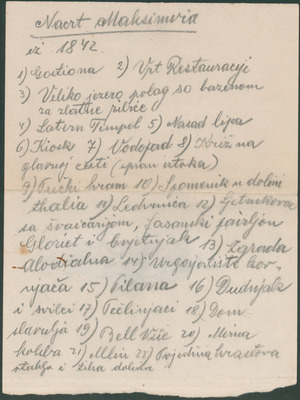 Nacrt Maksimira
iz 1842.
1) Gostiona 2) Vrt Restauracije
3) Veliko jezero polag sa bazenom
za zlatne ribice
4) Latern Timpel 5) Nasad lipa
6) Kiosk 7) Vodopad 8) Križ na
glavnoj cesti (spram istoka)
9) Ptički hram 10) Spomenik u dolini
thalia 11) Ledvenica 12)
sa švaicarijom, fasanski paviljon
Gloriet i Cvjetnjak 13) Zgrada
Alodialna 14) Uzgojilište kor-
njača 15) Pilana 16) Dudnjak
i svilci 17) Pčelinjaci 18) Dom
slavulja 19) Bell Vüe 20) Mirna
koliba 21) Mlin 22) Pojedina hrastova
stabla i tiha dolina